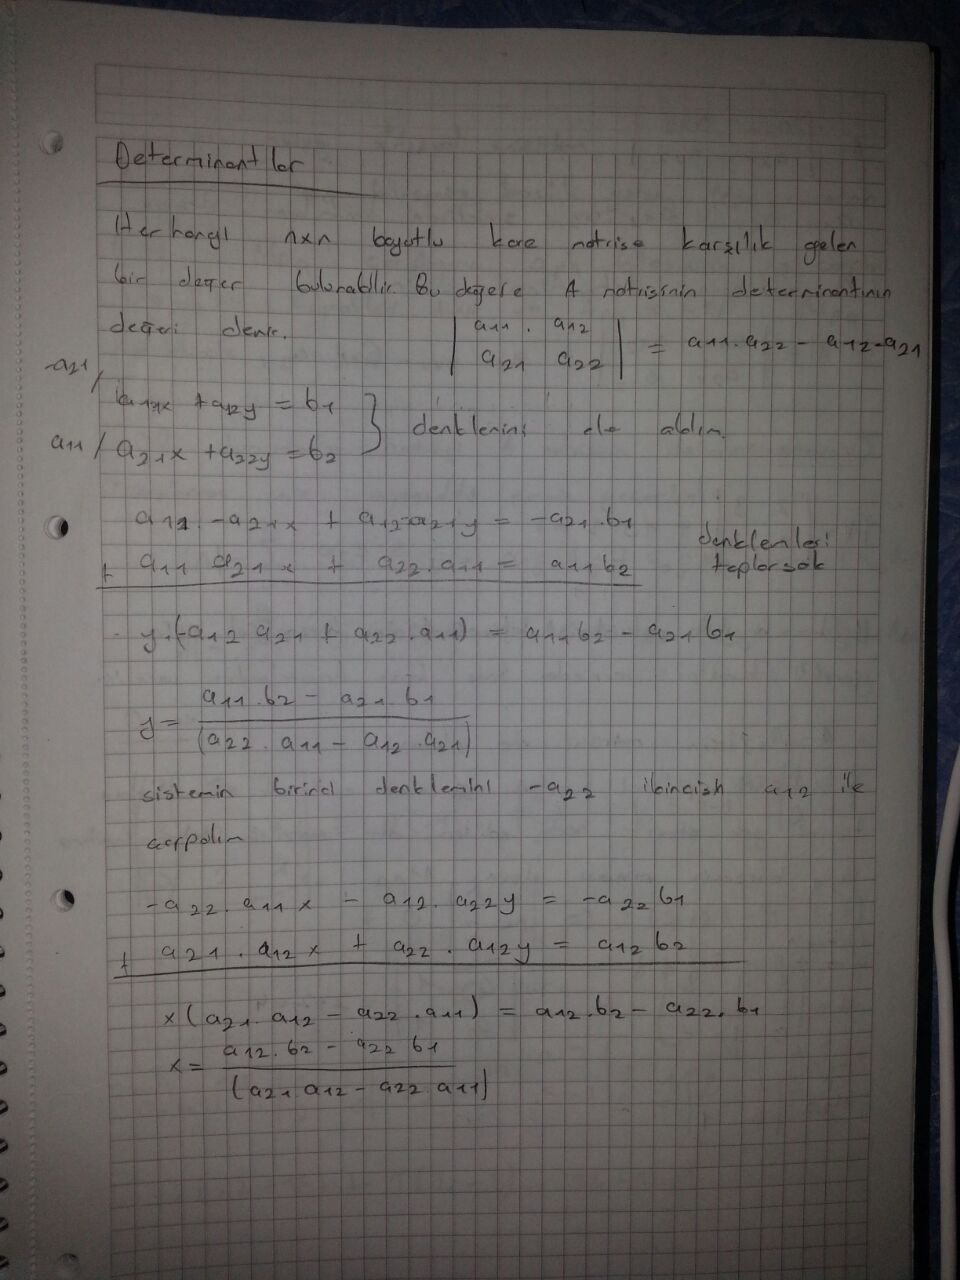 Determinantlar
Herhangi nxn boyutlu kare matrise karşılık gelen
bir değer bulunabilir. Bu değere A matrisinin determinantının
değeri denir. | a11 . a12 |
| a21 a22 | = a11.a22 - a12.a21
-a21/ a11x + a12y = b1
a11/ a21x + a22y = b2 } denklemini ele alalım.
a11.-a21x + a12-a21y = -a21.b1
+ a11 a21x + a22.a11 = a11b2
denklemleri
toplarsak
y.(-a12 a21 + a22.a11) = a11b2 - a21b1
y = a11.b2 - a21.b1
(a22.a11 - a12.a21)
sistemin birinci denklemini -a22 ikincisin a12 ile
çarpalım
-a22.a11x - a12.a22y = -a22b1
+ a21.a12x + a22.a12y = a12b2
x(a21.a12 - a22.a11) = a12.b2 - a22.b1
x = a12.b2 - a22 b1
(a21 a12 - a22 a11)